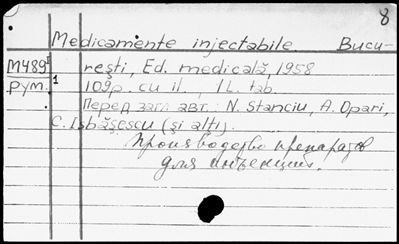 8
Medicamente injectabile. Bucu-
M489¹ reşti, Ed. medicală, 1958
рум. 1 109p. cu il., 1 L. tab.
Перед загл. авт.: N. Stanciu, A. Opari,
C. Isbăşescu (şi alţi).
Производство препаратов
для инъекций.